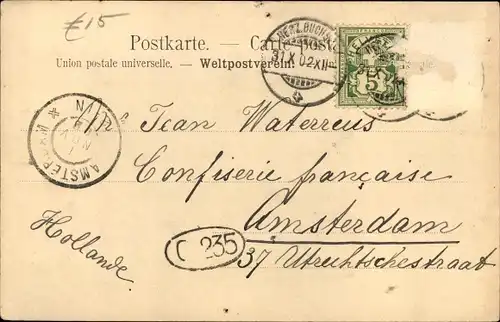 £15
Postkarte. — Carte postale
Union postale universelle. — Weltpostverein
HERZ.BUCHS
31.X.02.XII
HELVETIA
5
AMSTERDAM
Mr Jean Waterreus
Confiserie française
Amsterdam
37 Utrechtschestraat
Hollande
235